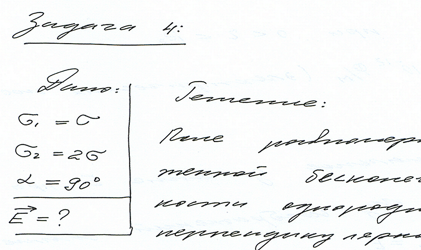 Задача 4:
Дано:
Решение:
σ₁ = σ
σ₂ = 2σ
α = 90°
E⃗ = ?
Поле равномер
женной бесконеч
кости однородн
перпендикулярна